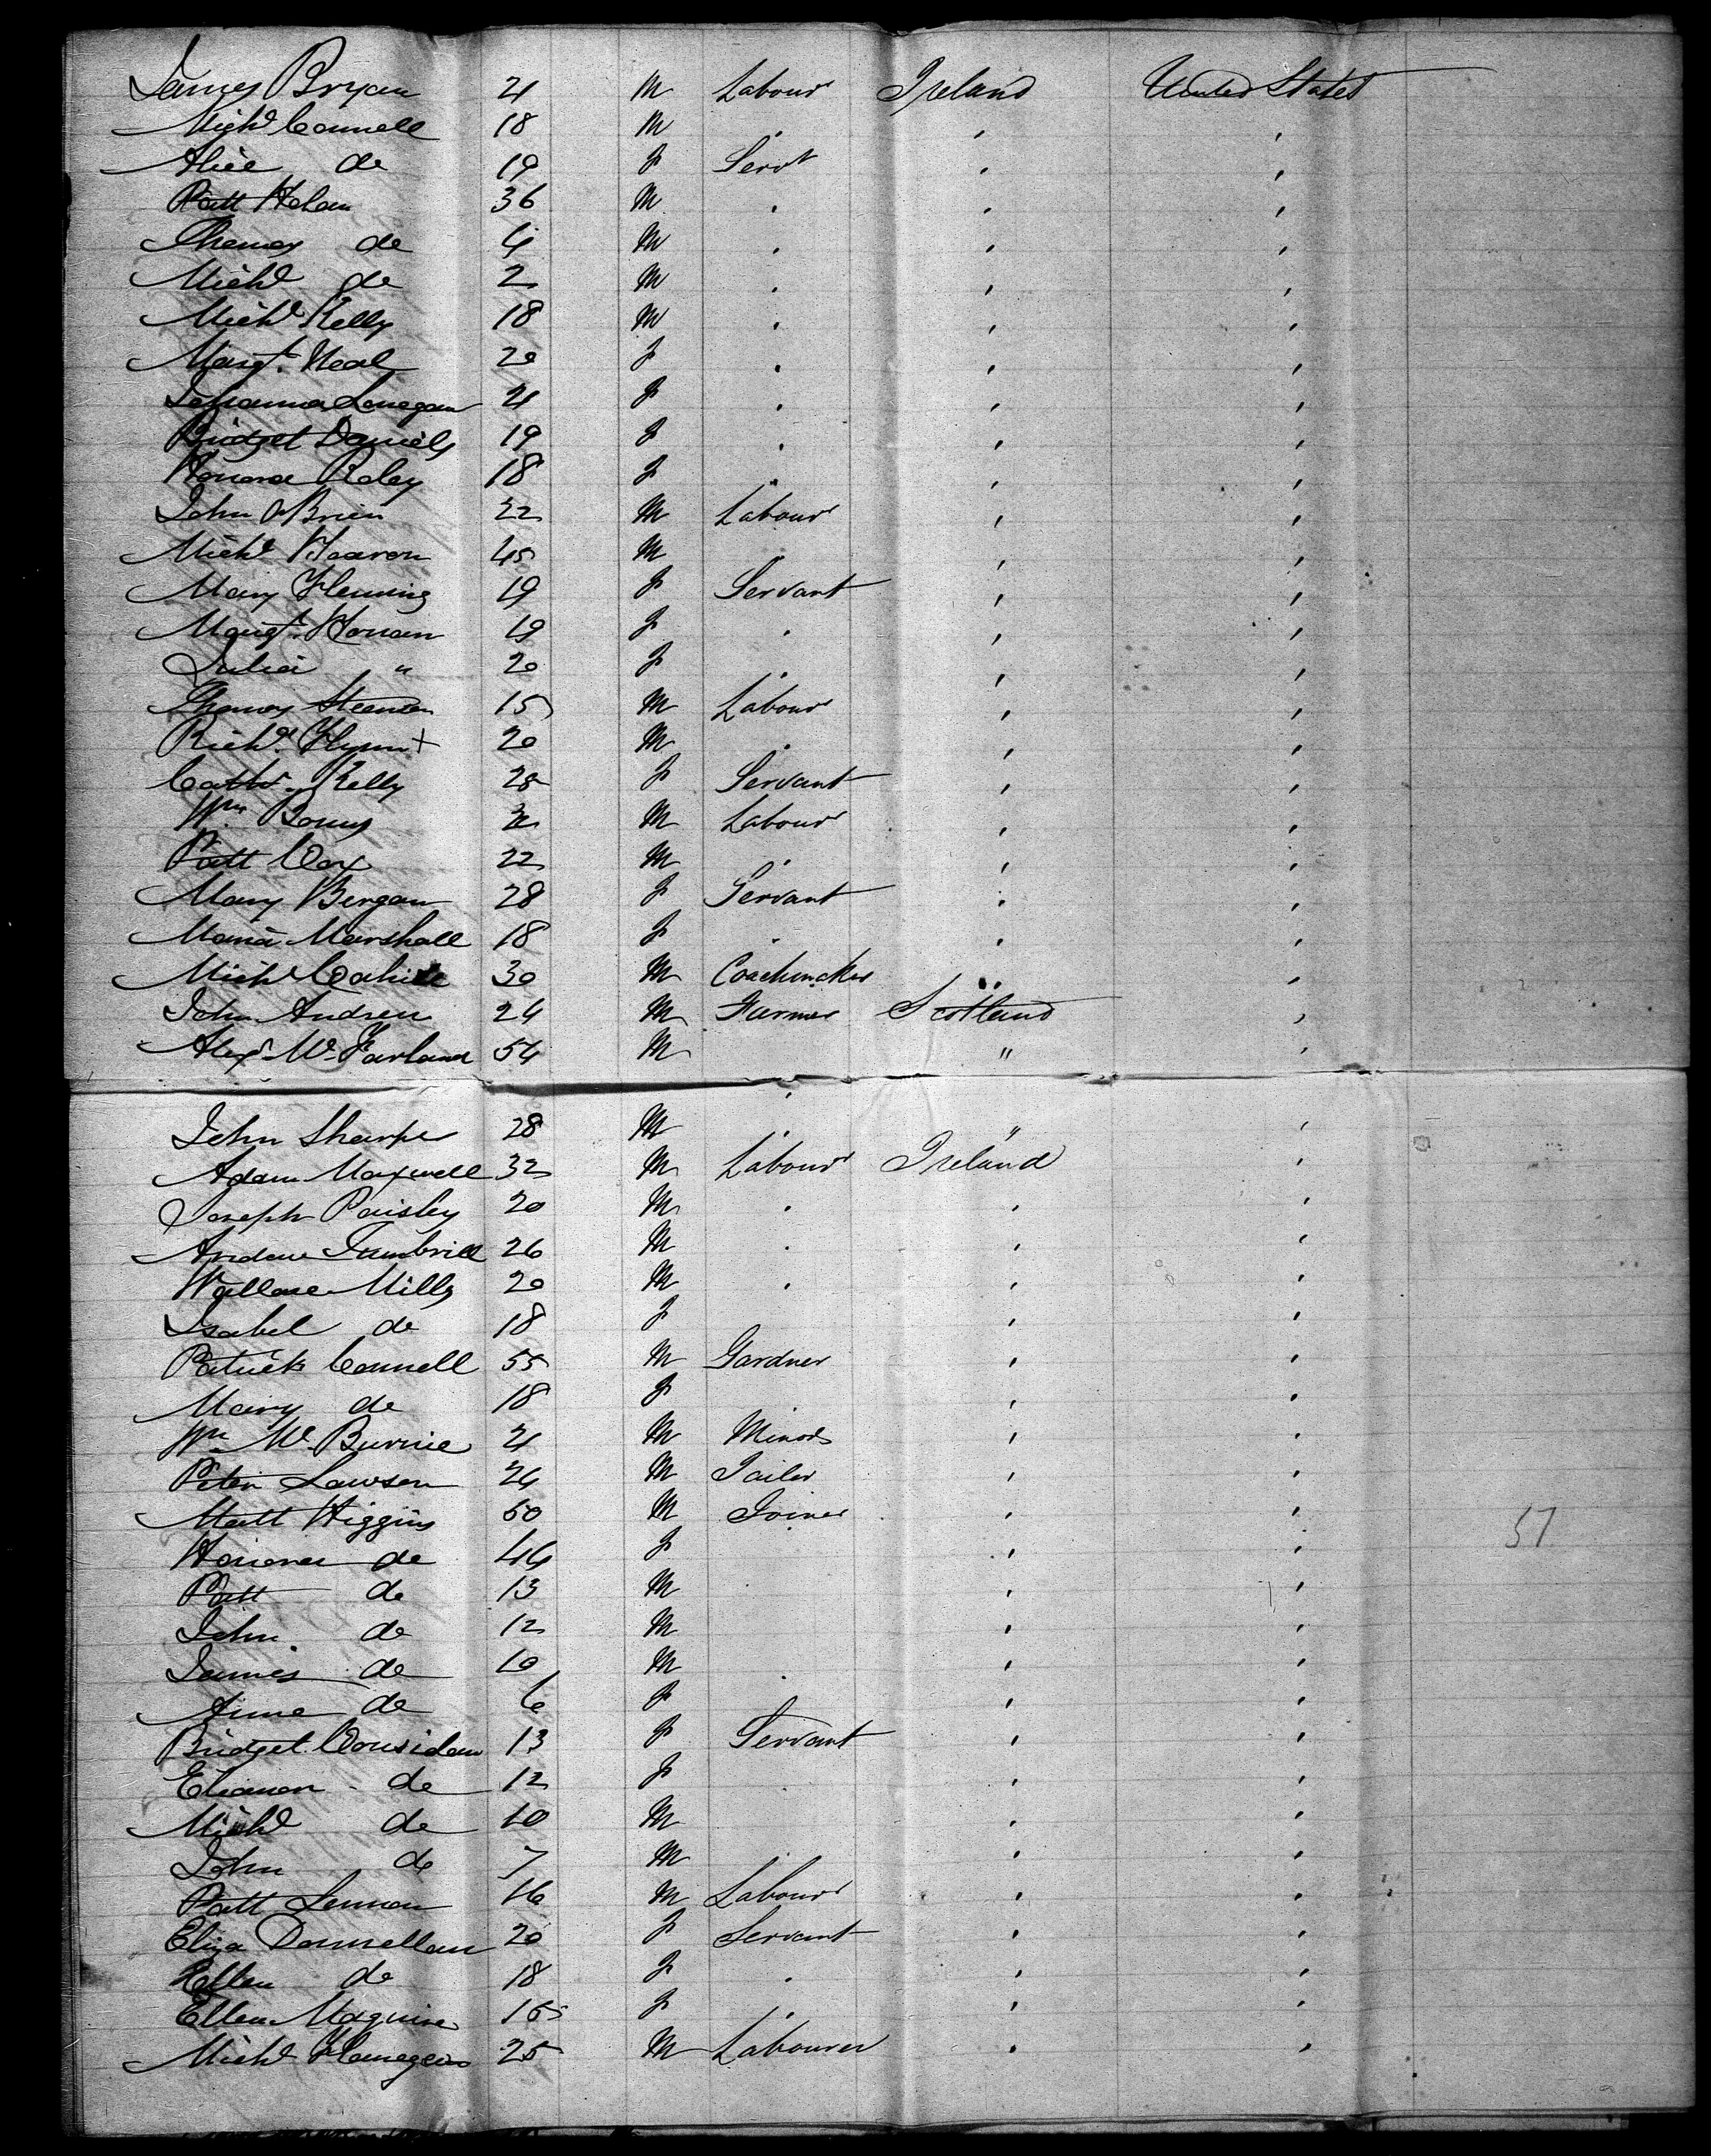 James Bryan 21 M Labour Ireland United States
Michl Connell 18 M . , ,
Alice do 19 F Servt , ,
Patt 36 M . , ,
Thomas do 4 M . , ,
Michl do 2 M . , ,
Michl Kelly 18 M . , ,
Margt. Neal 20 F . , ,
Johanna Lonegan 21 F . , ,
Bridget Daniels 19 F . , ,
Honora 18 F . , ,
John OBrien 22 M Labour , ,
Michl 45 M . , ,
Mary Fleming 19 F Servant , ,
Margt. Honan 19 F . , ,
Julia " 20 F . , ,
Thomas 15 M Labour , ,
Richd. Flynn + 20 M . , ,
Cathr. Kelly 28 F Servant , ,
Wm M Labour , ,
Patt Cox 22 M . , ,
Mary Bergan 28 F Servant , ,
Maria Marshall 18 F . , ,
Michl Cahill 30 M Coachmaker " ,
John Andrew 24 M Farmer Scotland ,
Alexr McFarland 54 M " ,
John Sharpe 28 M . " ,
Adam Maxwell 32 M Labour Ireland ,
Joseph Paisley 20 M . , ,
Andrew 26 M . , ,
Wallace Mills 20 M . , ,
Isabel do 18 F , ,
Patrick Connell 55 M Gardner , ,
Mary do 18 F , ,
Wm McBurnie 21 M Minors , ,
Peter Lawson 24 M Tailor , ,
Matt Higgins 50 M Joiner , , 51
Honora do 44 F , ,
Patt do 13 M , ,
John do 12 M , ,
James do 10 M , ,
Anne do 6 F . , ,
Bridget Considan 13 F Servant , ,
Elianor do 12 F , ,
Michl do 10 M , ,
John do 7 M . , ,
Patt Lennon 16 M Labour , ,
Eliza Donnellan 20 F Servant , ,
Ellen do 18 F . , ,
Ellen Maguire F . , ,
Michl Flanegan 25 M Labourer , ,